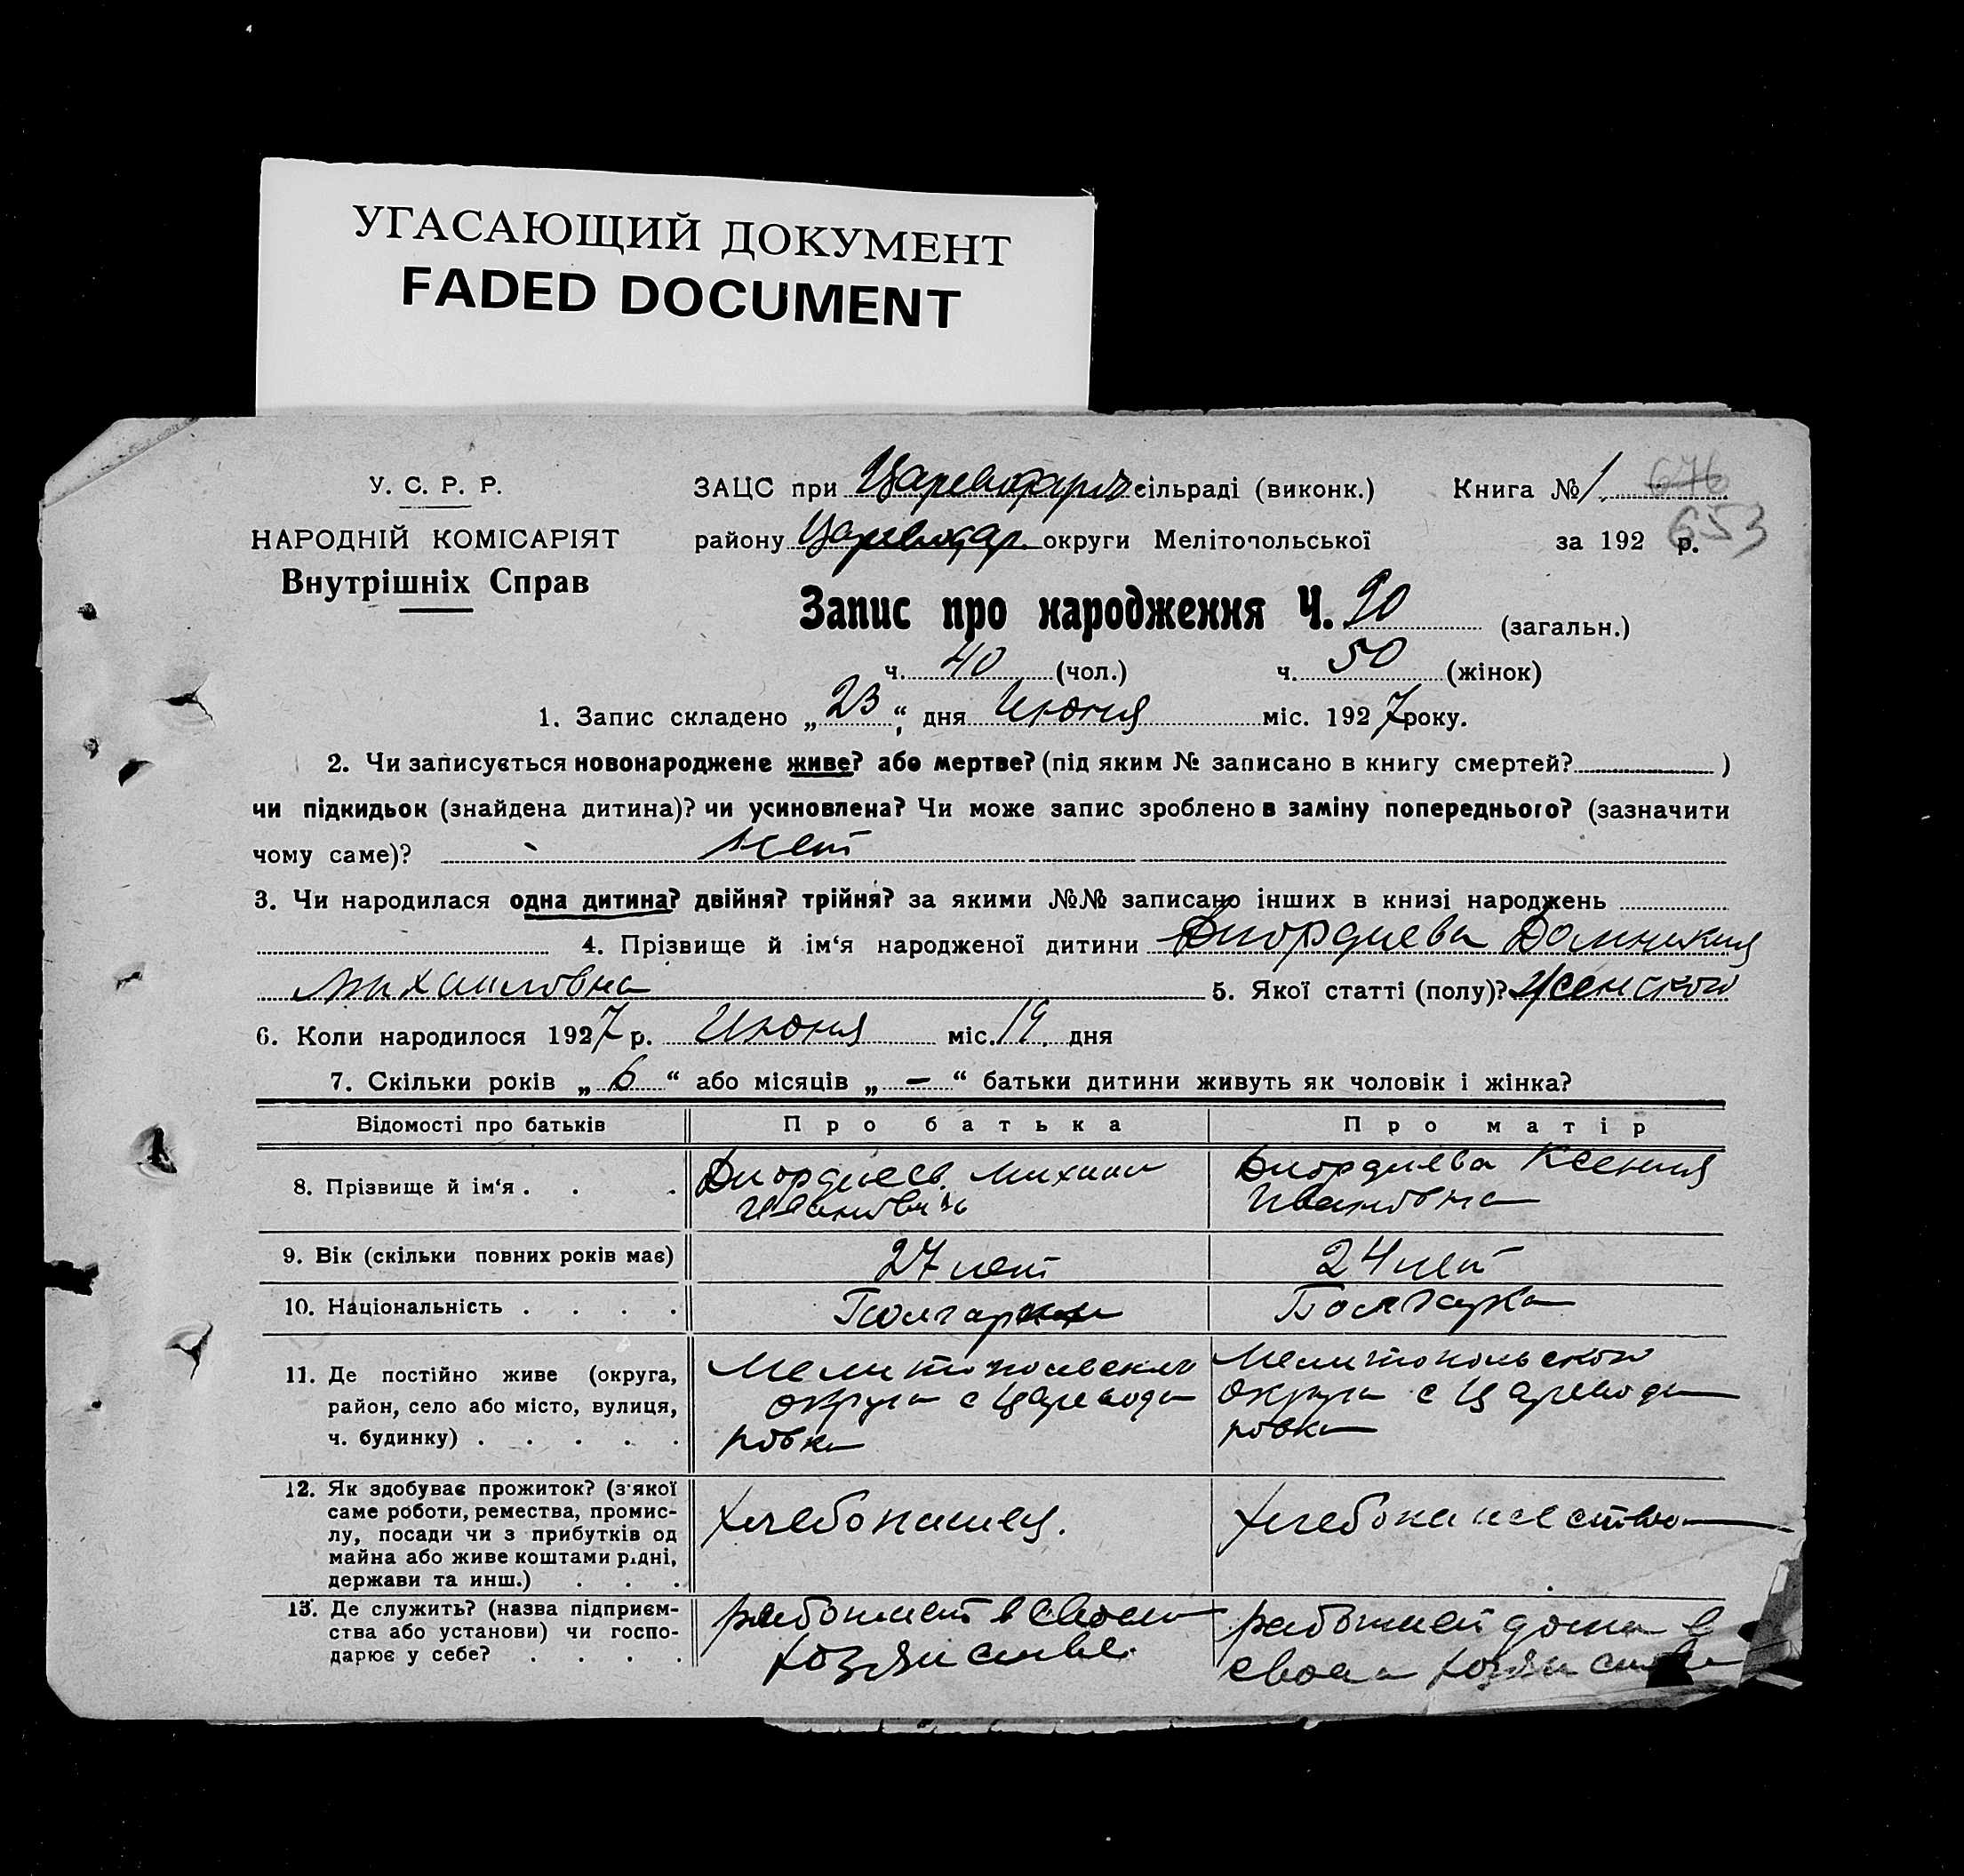 УГАСАЮЩИЙ ДОКУМЕНТ
FADED DOCUMENT
У. С. Р. Р.
НАРОДНІЙ КОМІСАРІЯТ
Внутрішніх Справ
ЗАЦС при сільраді (виконк.) Книга № 1. 676
району Цареводар. округи Мелітопольської за 192 р. 653
Запис про народження Ч. 90 (загальн.)
ч. 40 (чол.) ч. 50 (жінок)
1. Запис складено „23“, дня Июня міс. 1927 року.
2. Чи записується новонароджене живе? або мертве? (під яким № записано в книгу смертей? )
чи підкидьок (знайдена дитина)? чи усиновлена? Чи може запис зроблено в заміну попереднього? (зазначити
чому саме)? нет
3. Чи народилася одна дитина? двійня? трійня? за якими №№ записано інших в книзі народжень
4. Прізвище й ім‘я народженої дитини Диордиева Домникия
Михаиловна 5. Якої статті (полу)? женского
6. Коли народилося 1927 р. Июня міс. 19. дня
7. Скільки років „6“ або місяців „—“ батьки дитини живуть як чоловік і жінка?
Відомості про батьків Про батька Про матір
8. Прізвище й ім‘я . . . Диордиев Михаил Иванович Диордиева Ксения Ивановна
9. Вік (скільки повних років має) 27 лет 24 лет
10. Національність . . . . Болгарин Болгарка
11. Де постійно живе (округа, Мелитопольской Мелитопольской
район, село або місто, вулиця, округи с Царевода округи с Царевода
ч. будинку) . . . . . ровка ровка
12. Як здобуває прожиток? (з якої
саме роботи, ремества, промис-
лу, посади чи з прибутків од хлебопашец. хлебопашество
майна або живе коштами рідні,
держави та инш.) . . .
13. Де служить? (назва підприєм- работает в своем работает дома в
ства або установи) чи госпо- хозяистве. своем хозяистве
дарює у себе? . . . .